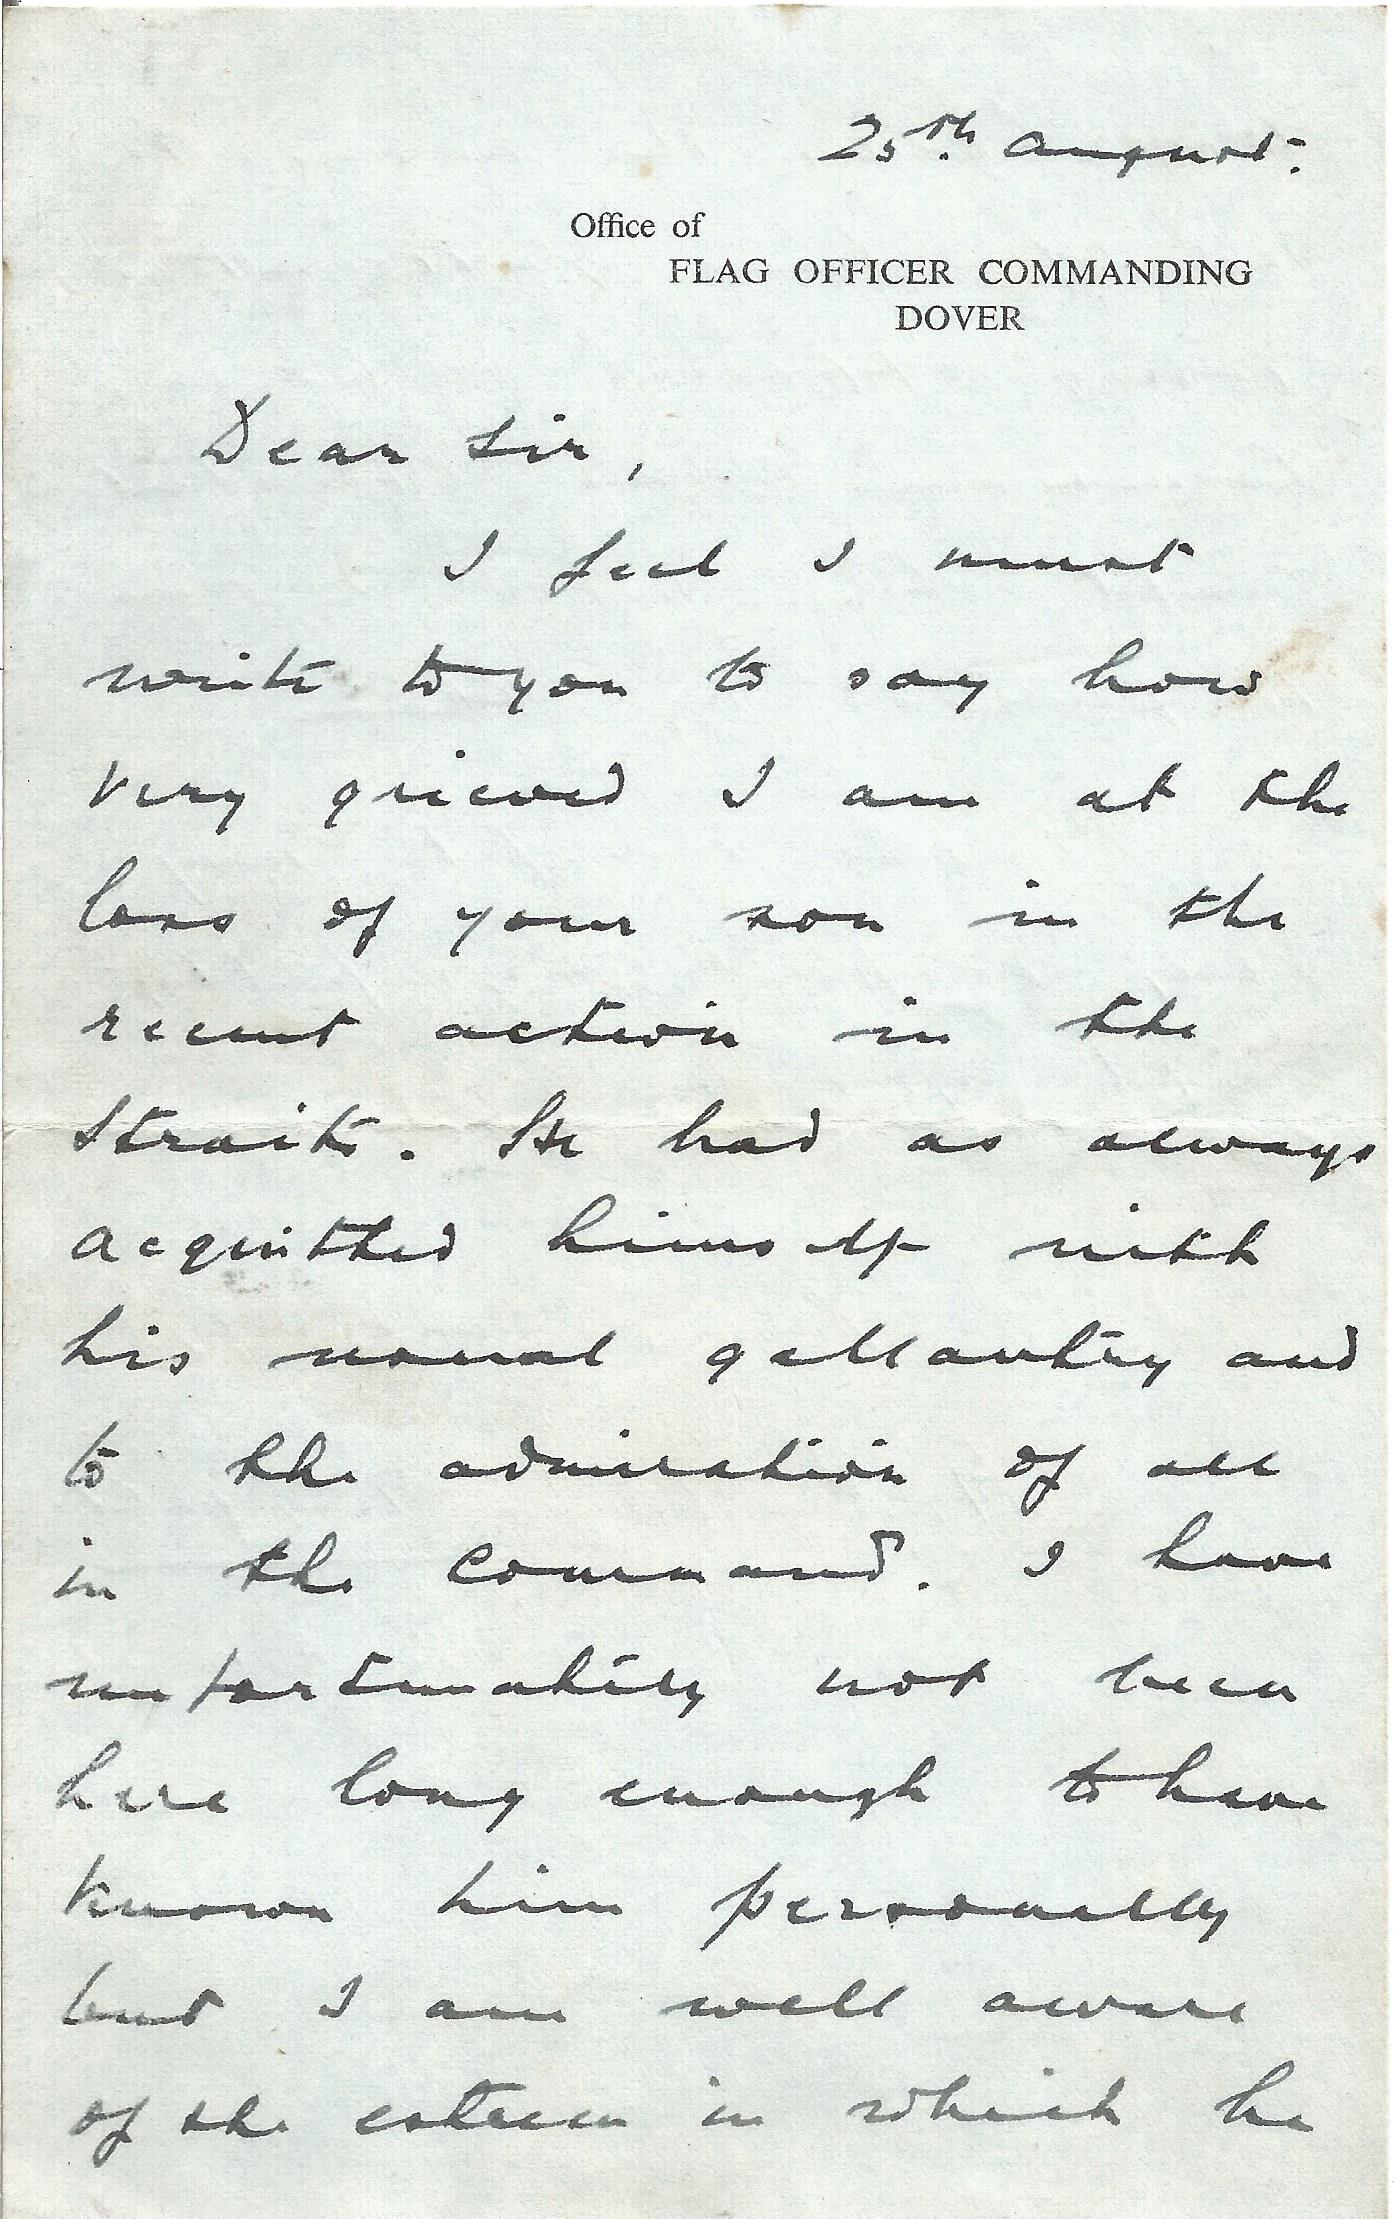 25th. August.
Office of
FLAG OFFICER COMMANDING
DOVER
Dear Sir,
I feel I must
write to you to say how
very grieved I am at the
loss of your son in the
recent action in the
Straits. He had as always
acquitted himself with
his usual gallantry and
to the admiration of all
in the Command. I have
unfortunately not been
here long enough to have
known him personally
but I am well aware
of the esteem in which he